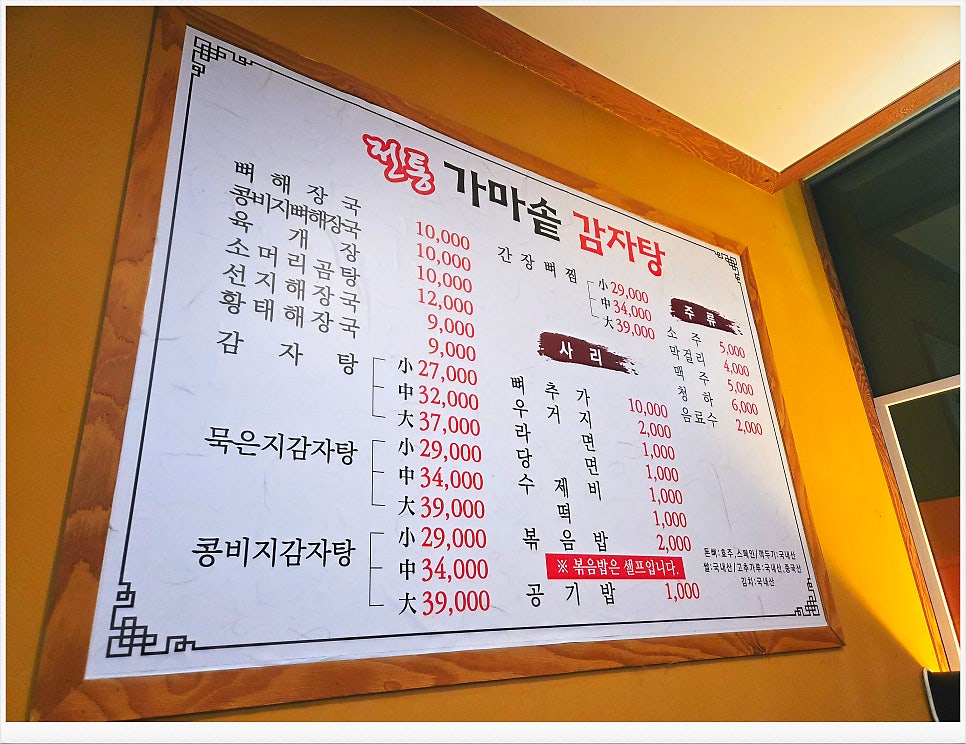 전통 가마솥 감자탕
뼈해장국 10,000
콩비지뼈해장국 10,000
육개장 10,000
소머리곰탕 12,000
선지해장국 9,000
황태해장국 9,000
감자탕 小 27,000
中 32,000
大 37,000
묵은지감자탕 小 29,000
中 34,000
大 39,000
콩비지감자탕 小 29,000
中 34,000
大 39,000
간장뼈찜 小 29,000
中 34,000
大 39,000
사리
뼈추가 10,000
우거지 2,000
라면 1,000
당면 1,000
수제비 1,000
떡 1,000
볶음밥 2,000
※ 볶음밥은 셀프입니다.
공기밥 1,000
주류
소주 5,000
막걸리 4,000
맥주 5,000
청하 6,000
음료수 2,000
돈뼈:호주,스페인/깍두기:국내산
쌀:국내산/고추가루:국내산,중국산
김치:국내산